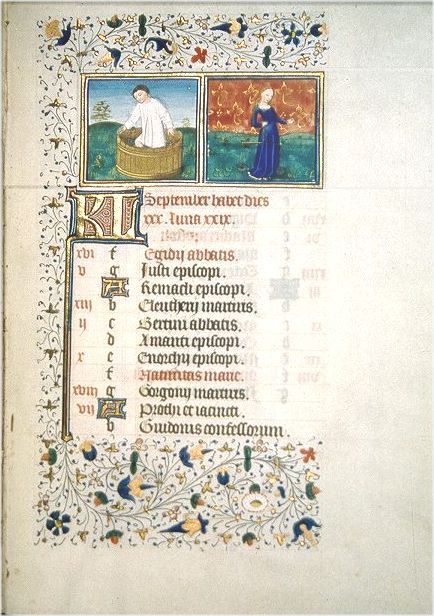 KL September habet dies
xxx. luna xxix.
xvi f Egidij abbatis.
v g Justi episcopi.
A Remacli episcopi.
xiii b Eleutherij martiris.
ii c Bertini abbatis.
d Amanti episcopi.
x e Enorchij episcopi.
f Natiuitas marie.
xviii g Gorgonij martiris.
vii A Prothi et iacincti.
b Guidonis confessorum.